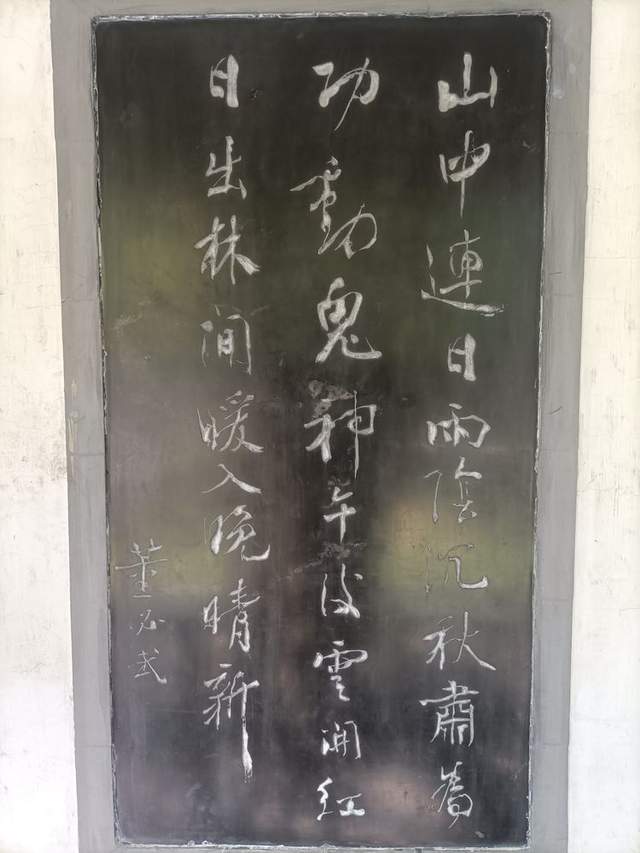 山中連日雨陰沉秋肅為
功動鬼神午後雲開紅
日出林間暖入晚晴新
董必武